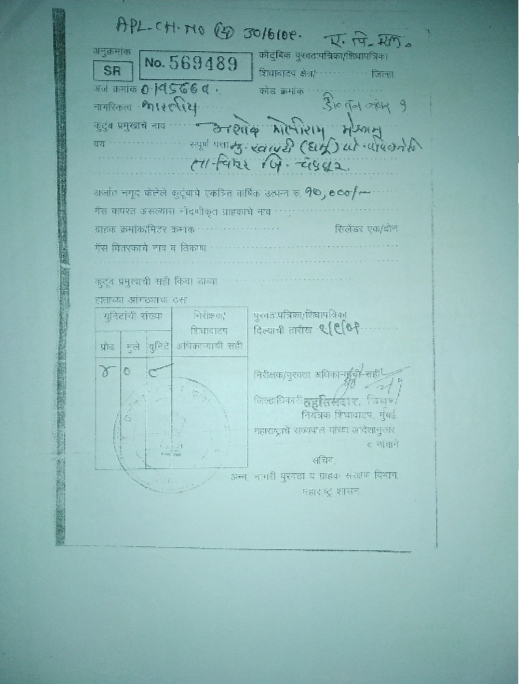 APL-CH-NO 30/6/09.
अनुक्रमांक
SR No. 569489
कौटुंबिक पुरवठा पत्रिका/शिधापत्रिका
शिधावाटप क्षेत्र/ जिल्हा
अर्ज क्रमांक
कोड क्रमांक
नागरिकत्व भारतीय
कुटुंब प्रमुखाचे नाव अशोक मोतीराम मेश्राम
वय संपूर्ण पत्ता
जि. चंद्रपूर.
अर्जात नमूद केलेले कुटुंबाचे एकत्रित वार्षिक उत्पन्न रु. १०,०००/-
गॅस वापरत असल्यास नोंदणीकृत ग्राहकाचे नाव
ग्राहक क्रमांक/मिटर क्रमांक सिलेंडर एक/दोन
गॅस वितरकाचे नाव व ठिकाण
कुटुंब प्रमुखाची सही किंवा डाव्या
हाताच्या आंगठ्याचा ठसा
युनिटांची संख्या
निरीक्षक/
शिधावाटप
अधिकाऱ्याची सही
प्रौढ मुले युनिट
४ ० ८
पुरवठा पत्रिका/शिधापत्रिका
दिल्याची तारीख
निरीक्षक/पुरवठा अधिकाऱ्याची सही
जिल्हाधिकारी तहसिलदार, चिमूर/
नियंत्रक शिधावाटप, मुंबई
महाराष्ट्राचे राज्यपाल यांच्या आदेशानुसार
व नावाने
सचिव,
अन्न, नागरी पुरवठा व ग्राहक संरक्षण विभाग,
महाराष्ट्र शासन